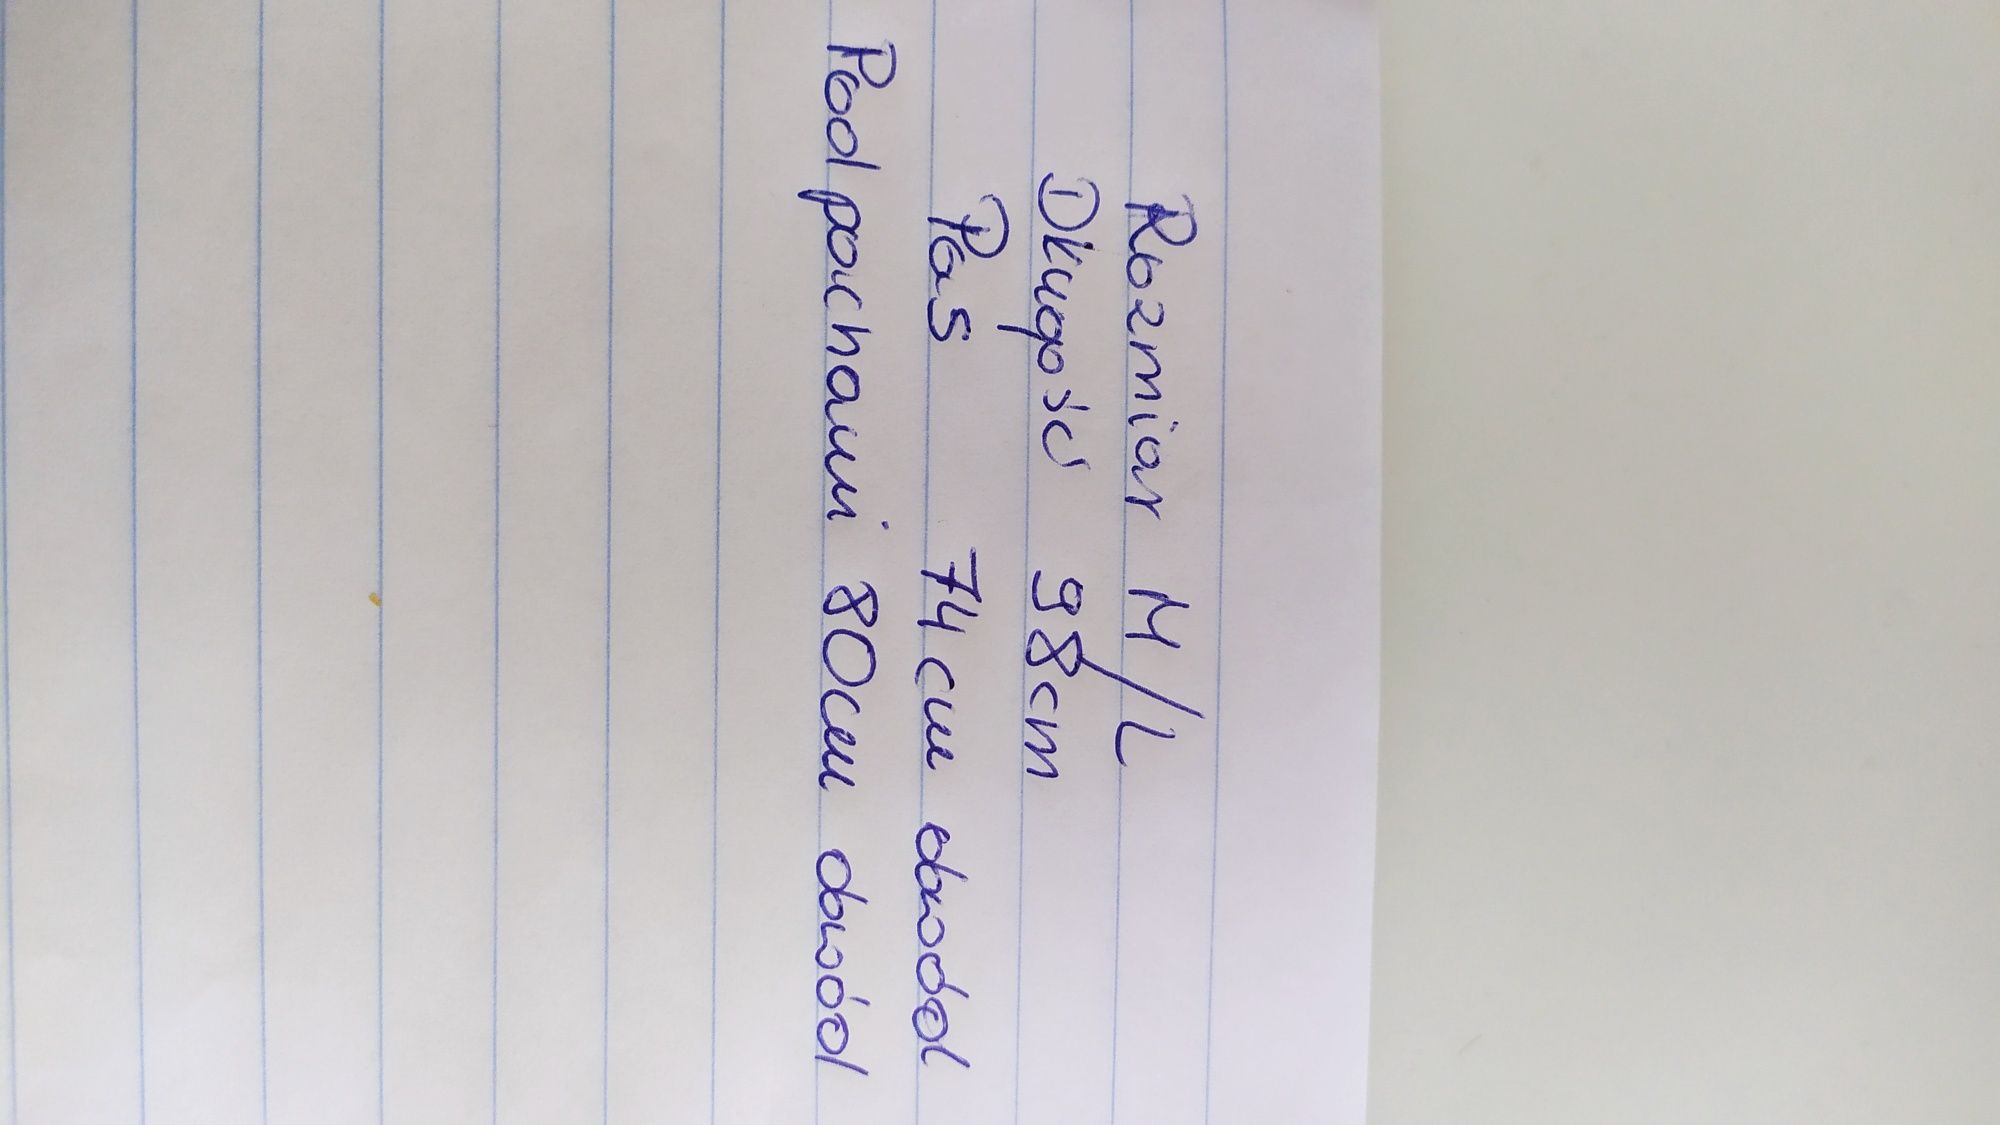 Rozmiar M/L
Długość 98cm
Pas 74cm obwód
Pod pachami 80cm obwód